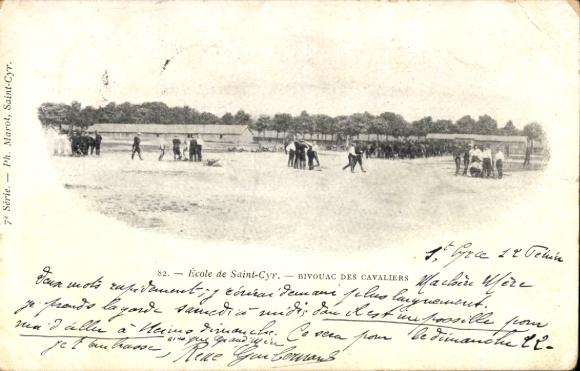 7e Série. — Ph. Marot, Saint-Cyr.
82. — École de Saint-Cyr. — BIVOUAC DES CAVALIERS
St Cyr 12 Février
Ma chère Mère
Deux mots rapidement. j'écrirai demain plus longuement.
je prends la garde samedi à midi, donc il est impossible pour
moi d'aller à Reims dimanche. Ce sera pour le dimanche 22.
Je t'embrasse, ainsi que Grand'Mère
René